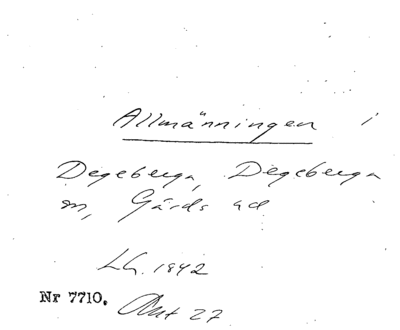 Allmänningen i
Degeberga, Degeberga
sn, Gärds hd
LG. 1942
Nr 7710.
27